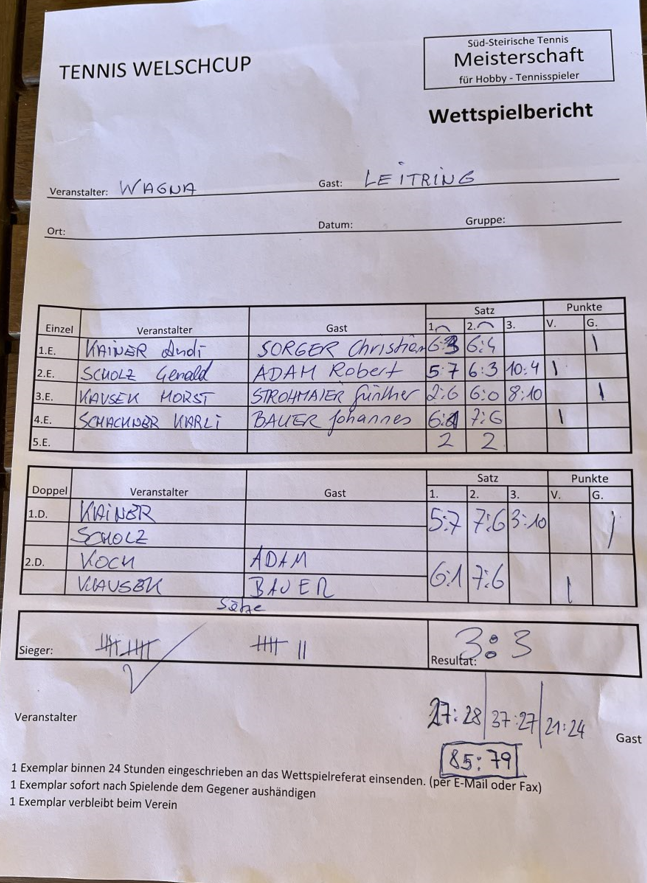 TENNIS WELSCHCUP
Süd-Steirische Tennis
Meisterschaft
für Hobby - Tennisspieler
Wettspielbericht
Veranstalter: WAGNA Gast: LEITRING
Ort: Datum: Gruppe:
Satz Punkte
Einzel Veranstalter Gast 1. 2. 3. V. G.
1.E. KAINER Andi SORGER Christian 6:3 6:4 |
2.E. SCHOLZ Gerald ADAM Robert 5:7 6:3 10:4 |
3.E. KAUSEK HORST STROHMAIER Günther 2:6 6:0 8:10 |
4.E. SCHACHNER KARLI BAUER Johannes 6:1 7:6 |
5.E. 2 2
Satz Punkte
Doppel Veranstalter Gast 1. 2. 3. V. G.
1.D. KAINER 5:7 7:6 3:10 |
SCHOLZ
2.D. KOCH ADAM 6:1 7:6 |
KLAUSEK BAUER
Sätze
Sieger: Resultat: 3:3
27:28 37:27 21:24
Veranstalter Gast
85:79
1 Exemplar binnen 24 Stunden eingeschrieben an das Wettspielreferat einsenden. (per E-Mail oder Fax)
1 Exemplar sofort nach Spielende dem Gegener aushändigen
1 Exemplar verbleibt beim Verein